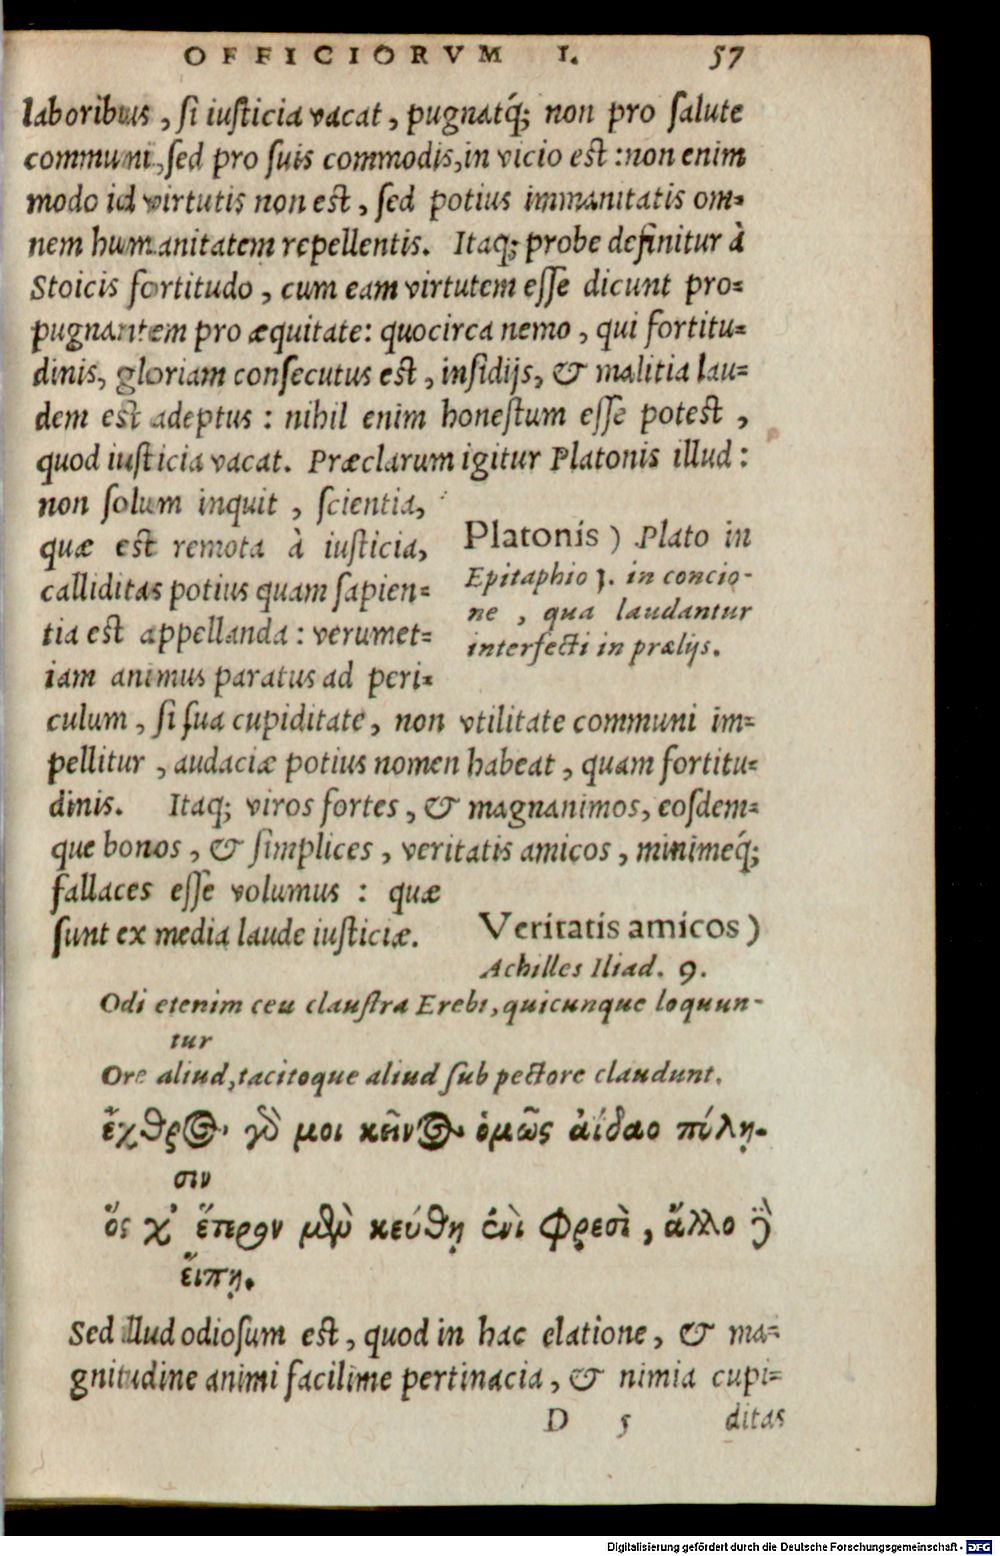 OFFICIORVM I. 57
laboribus, si iusticia vacat, pugnatq́; non pro salute
communi, sed pro suis commodis, in vicio est: non enim
modo id virtutis non est, sed potius immanitatis om-
nem humanitatem repellentis. Itaq; probe definitur à
Stoicis fortitudo, cum eam virtutem esse dicunt pro-
pugnantem pro æquitate: quocirca nemo, qui fortitu-
dinis, gloriam consecutus est, insidijs, & malitia lau-
dem est adeptus: nihil enim honestum esse potest,
quod iusticia vacat. Præclarum igitur Platonis illud:
non solum inquit, scientia,
quæ est remota à iusticia,
calliditas potius quam sapien-
tia est appellanda: verumet-
iam animus paratus ad peri-
Platonis) Plato in
Epitaphio 3. in concio-
ne, qua laudantur
interfecti in prælijs.
culum, si sua cupiditate, non vtilitate communi im-
pellitur, audaciæ potius nomen habeat, quam fortitu-
dinis. Itaq; viros fortes, & magnanimos, eosdem-
que bonos, & simplices, veritatis amicos, minimeq́;
fallaces esse volumus: quæ
sunt ex media laude iusticiæ.
Veritatis amicos)
Achilles Iliad. 9.
Odi etenim ceu claustra Erebi, quicunque loquun-
tur
Ore aliud, tacitoque aliud sub pectore claudunt.
ἐχθρὸς γάρ μοι κεῖνος ὁμῶς ἀίδαο πύλῃ-
σιν
ὅς χ' ἕτερον μὲν κεύθῃ ἐνὶ φρεσὶ, ἄλλο δὲ
εἴπῃ.
Sed illud odiosum est, quod in hac elatione, & ma-
gnitudine animi facilime pertinacia, & nimia cupi-
D 5 ditas
Digitalisierung gefördert durch die Deutsche Forschungsgemeinschaft - DFG